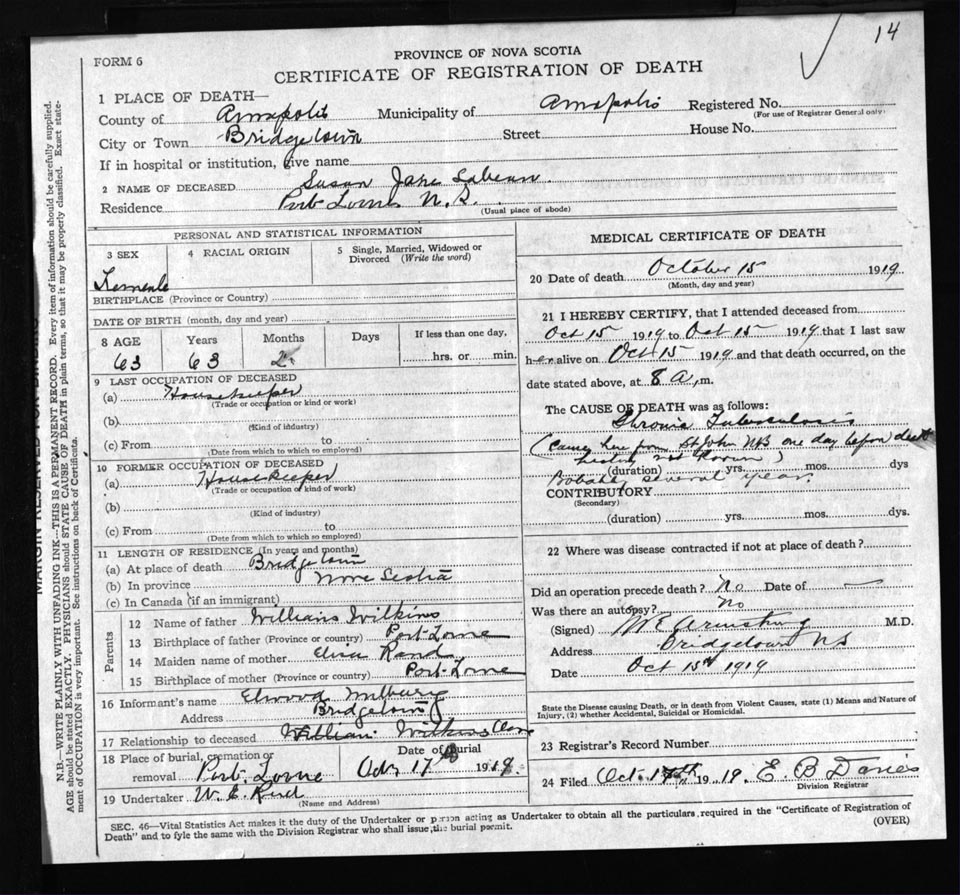 14
PROVINCE OF NOVA SCOTIA
FORM 6
CERTIFICATE OF REGISTRATION OF DEATH
1 PLACE OF DEATH—
County of Annapolis Municipality of Annapolis Registered No.
(For use of Registrar General only)
City or Town Bridgetown Street House No.
If in hospital or institution, give name
2 NAME OF DECEASED Susan Jane Sabean
Residence Port Lorne N.S.
(Usual place of abode)
MARGIN RESERVED FOR BINDING
N.B.—WRITE PLAINLY WITH UNFADING INK—THIS IS A PERMANENT RECORD. Every item of information should be carefully supplied.
AGE should be stated EXACTLY. PHYSICIANS should STATE CAUSE OF DEATH in plain terms, so that it may be properly classified. Exact state-
ment of OCCUPATION is very important. See instructions on back of Certificate.
PERSONAL AND STATISTICAL INFORMATION
3 SEX 4 RACIAL ORIGIN 5 Single, Married, Widowed or
Divorced (Write the word)
Female
BIRTHPLACE (Province or Country)
DATE OF BIRTH (month, day and year)
8 AGE Years Months Days If less than one day,
63 63 2 hrs. or min.
9 LAST OCCUPATION OF DECEASED
(a) Housekeeper
(Trade or occupation or kind of work)
(b)
(Kind of industry)
(c) From to
(Date from which to which so employed)
10 FORMER OCCUPATION OF DECEASED
(a) Housekeeper
(Trade or occupation or kind of work)
(b)
(Kind of industry)
(c) From to
(Date from which to which so employed)
11 LENGTH OF RESIDENCE (In years and months)
(a) At place of death Bridgetown
(b) In province Nova Scotia
(c) In Canada (if an immigrant)
Parents
12 Name of father William Wilkins
13 Birthplace of father (Province or country) Port Lorne
14 Maiden name of mother Eliza Rand
15 Birthplace of mother (Province or country) Port Lorne
16 Informant's name Elwood Milbury
Address Bridgetown
17 Relationship to deceased William Wilkins
18 Place of burial, cremation or Date of Burial
removal Port Lorne 17 1919
19 Undertaker W. E. Reed
(Name and Address)
MEDICAL CERTIFICATE OF DEATH
20 Date of death October 15 1919
(Month, day and year)
21 I HEREBY CERTIFY, that I attended deceased from
Oct 15 1919 to Oct 15 1919 that I last saw
her alive on Oct 15 1919 and that death occurred, on the
date stated above, at 8 a, m.
The CAUSE OF DEATH was as follows:
Chronic Tuberculosis
(came here from St John NB one day before death
history not known)
(duration) yrs. mos. dys
Probably several years.
CONTRIBUTORY
(Secondary)
(duration) yrs. mos. dys.
22 Where was disease contracted if not at place of death?
Did an operation precede death? No Date of —
Was there an autopsy? No
(Signed) M E Armstrong M.D.
Address Bridgetown NS
Date Oct 15th 1919
State the Disease causing Death, or in death from Violent Causes, state (1) Means and Nature of
Injury, (2) whether Accidental, Suicidal or Homicidal.
23 Registrar's Record Number
24 Filed Oct. 17th 1919. E B
Division Registrar
SEC. 46—Vital Statistics Act makes it the duty of the Undertaker or person acting as Undertaker to obtain all the particulars required in the "Certificate of Registration of
Death" and to fyle the same with the Division Registrar who shall issue the burial permit. (OVER)